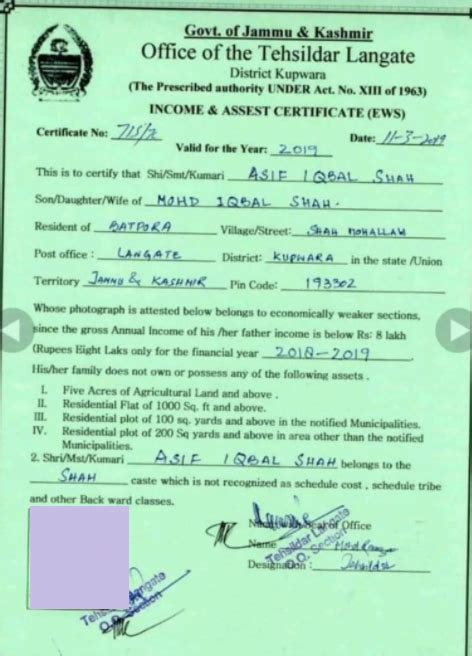 Govt. of Jammu & Kashmir
Office of the Tehsildar Langate
District Kupwara
(The Prescribed authority UNDER Act. No. XIII of 1963)
INCOME & ASSEST CERTIFICATE (EWS)
Certificate No: 715/z Date: 11-3-2019
Valid for the Year: 2019
This is to certify that Shi/Smt/Kumari ASIF IQBAL SHAH
Son/Daughter/Wife of MOHD IQBAL SHAH.
Resident of BATPORA Village/Street: SHAH MOHALLAH
Post office : LANGATE District: KUPWARA in the state /Union
Territory JAMMU & KASHMIR Pin Code: 193302
Whose photograph is attested below belongs to economically weaker sections,
since the gross Annual Income of his /her father income is below Rs: 8 lakh
(Rupees Eight Laks only for the financial year 2018-2019
His/her family does not own or possess any of the following assets .
I. Five Acres of Agricultural Land and above .
II. Residential Flat of 1000 Sq. ft and above.
III. Residential plot of 100 sq. yards and above in the notified Municipalities.
IV. Residential plot of 200 Sq yards and above in area other than the notified
Municipalities.
2. Shri/Mst/Kumari ASIF IQBAL SHAH belongs to the
SHAH caste which is not recognized as schedule cost , schedule tribe
and other Back ward classes.
Seal of Office
Name
Designation : Tehsildar
Tehsildar Langate
D.Q. Section
Tehsildar Langate
D.Q. Section